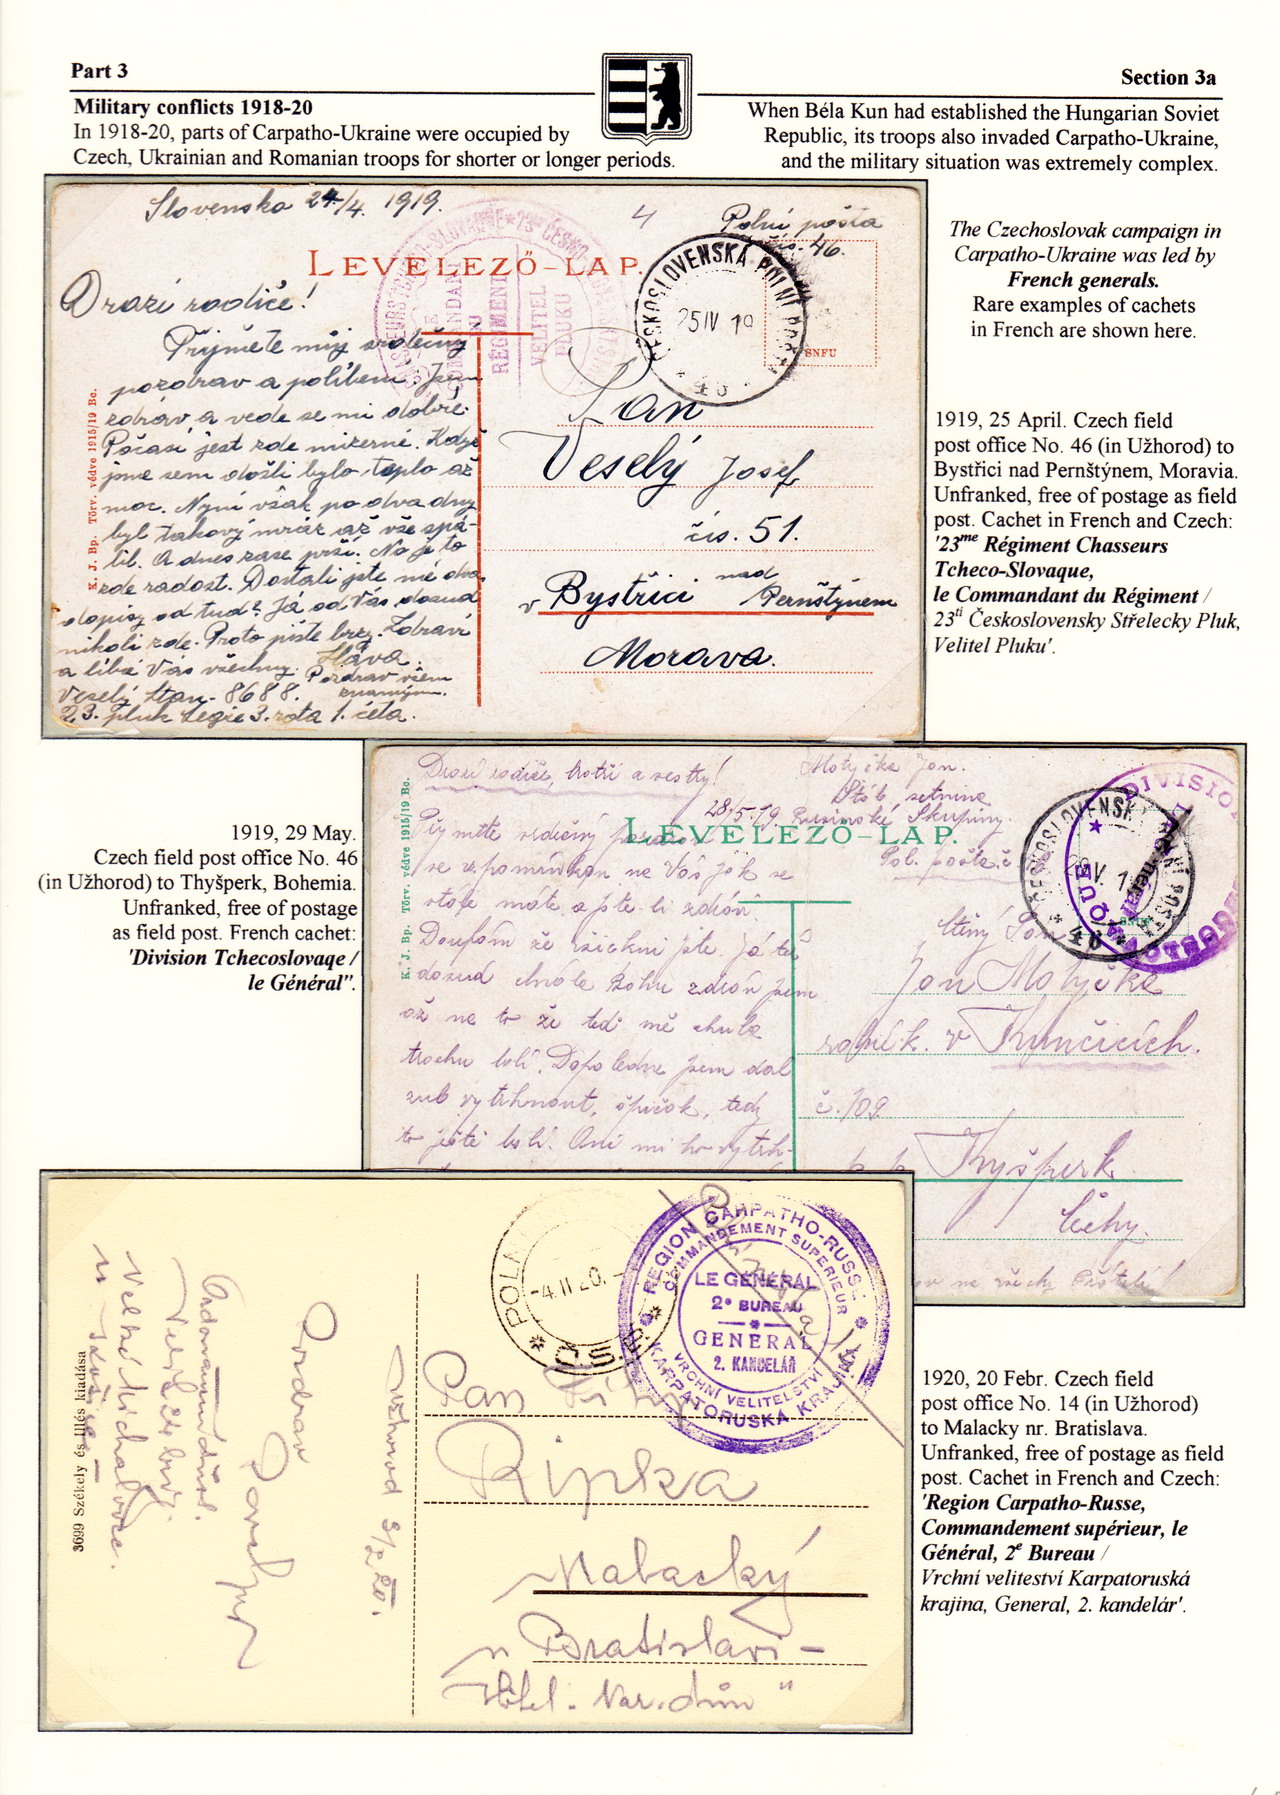 Part 3
Section 3a
Military conflicts 1918-20
In 1918-20, parts of Carpatho-Ukraine were occupied by
Czech, Ukrainian and Romanian troops for shorter or longer periods.
When Béla Kun had established the Hungarian Soviet
Republic, its troops also invaded Carpatho-Ukraine,
and the military situation was extremely complex.
Slovensko 24/4. 1919.
4
Polní pošta
čís. 46.
LEVELEZŐ-LAP.
ČESKOSLOVENSKÁ POLNÍ POŠTA
25 IV 19
* 46 *
RÉGIMENT
VELITEL
PLUKU
SNFU
K. J. Bp. Törv. védve 1915/19 Bc.
Drazí rodiče!
Přijměte můj srdečný
pozdrav a políbení. Jsem
zdráv, a vede se mi dobře.
Počasí jest zde mizerné. Když
jsme sem došli bylo teplo až
moc. Nyní však po dva dny
byl takový mráz až vše spá-
lil. A dnes zase prší. No je to
zde radost. Dostali jste mé dva
dopisy od tud? Já od Vás dosud
nikoli zde. Proto pište brzy. Zdraví
a líbá Vás všechny. Sláva.
Pozdrav všem
známým.
Veselý Stan. 8688.
23. pluk Legie 3. rota 1. četa.
Pan
Veselý Josef
čís. 51.
v Bystřici nad Pernštýnem
Morava.
The Czechoslovak campaign in
Carpatho-Ukraine was led by
French generals.
Rare examples of cachets
in French are shown here.
1919, 25 April. Czech field
post office No. 46 (in Užhorod) to
Bystřici nad Pernštýnem, Moravia.
Unfranked, free of postage as field
post. Cachet in French and Czech:
'23me Régiment Chasseurs
Tcheco-Slovaque,
le Commandant du Régiment /
23ti Československy Střelecky Pluk,
Velitel Pluku'.
1919, 29 May.
Czech field post office No. 46
(in Užhorod) to Thyšperk, Bohemia.
Unfranked, free of postage
as field post. French cachet:
'Division Tchecoslovaqe /
le Général".
K. J. Bp. Törv. védve 1915/19 Bc.
Drazí rodiče, bratři a sestry!
28/5.19.
Motyčka Jan.
Štáb. setnina
Rusínské Skupiny.
Pol. pošta č
LEVELEZŐ-LAP.
Přijměte srdečný pozdrav
se vzpomínkou na Vás jak se
stále máte a jste-li zdrávi.
Doufám že všichni jste. Já též
dosud chvála Bohu zdráv jsem
až na to že teď mě huba
trochu bolí. Dopoledne jsem dal
zub vytrhnout, špičák, tedy
to ještě bolí. Ani mi ho vytrh-
ČESKOSLOVENSKÁ POLNÍ POŠTA
* 46 *
DIVISION
Jan Motyčka
rolník v Kunčicích.
č. 109
p. p. Kyšperk
Čechy.
3699 Székely és Illés kiadása
POLNÍ
-4.II 20.-
Č.S.P.
REGION CARPATHO-RUSSE
COMMANDEMENT SUPERIEUR
LE GENERAL
2e BUREAU
GENERAL
2. KANCELÁŘ
VRCHNÍ VELITELSTVÍ
KARPATORUSKÁ KRAJINA
Užhorod 3/2 20.
Pozdrav
Pan
Ripka
Malacký
u Bratislavi -
Hotel. Nar. dům"
1920, 20 Febr. Czech field
post office No. 14 (in Užhorod)
to Malacky nr. Bratislava.
Unfranked, free of postage as field
post. Cachet in French and Czech:
'Region Carpatho-Russe,
Commandement supérieur, le
Général, 2e Bureau /
Vrchní veliteství Karpatoruská
krajina, General, 2. kandelár'.